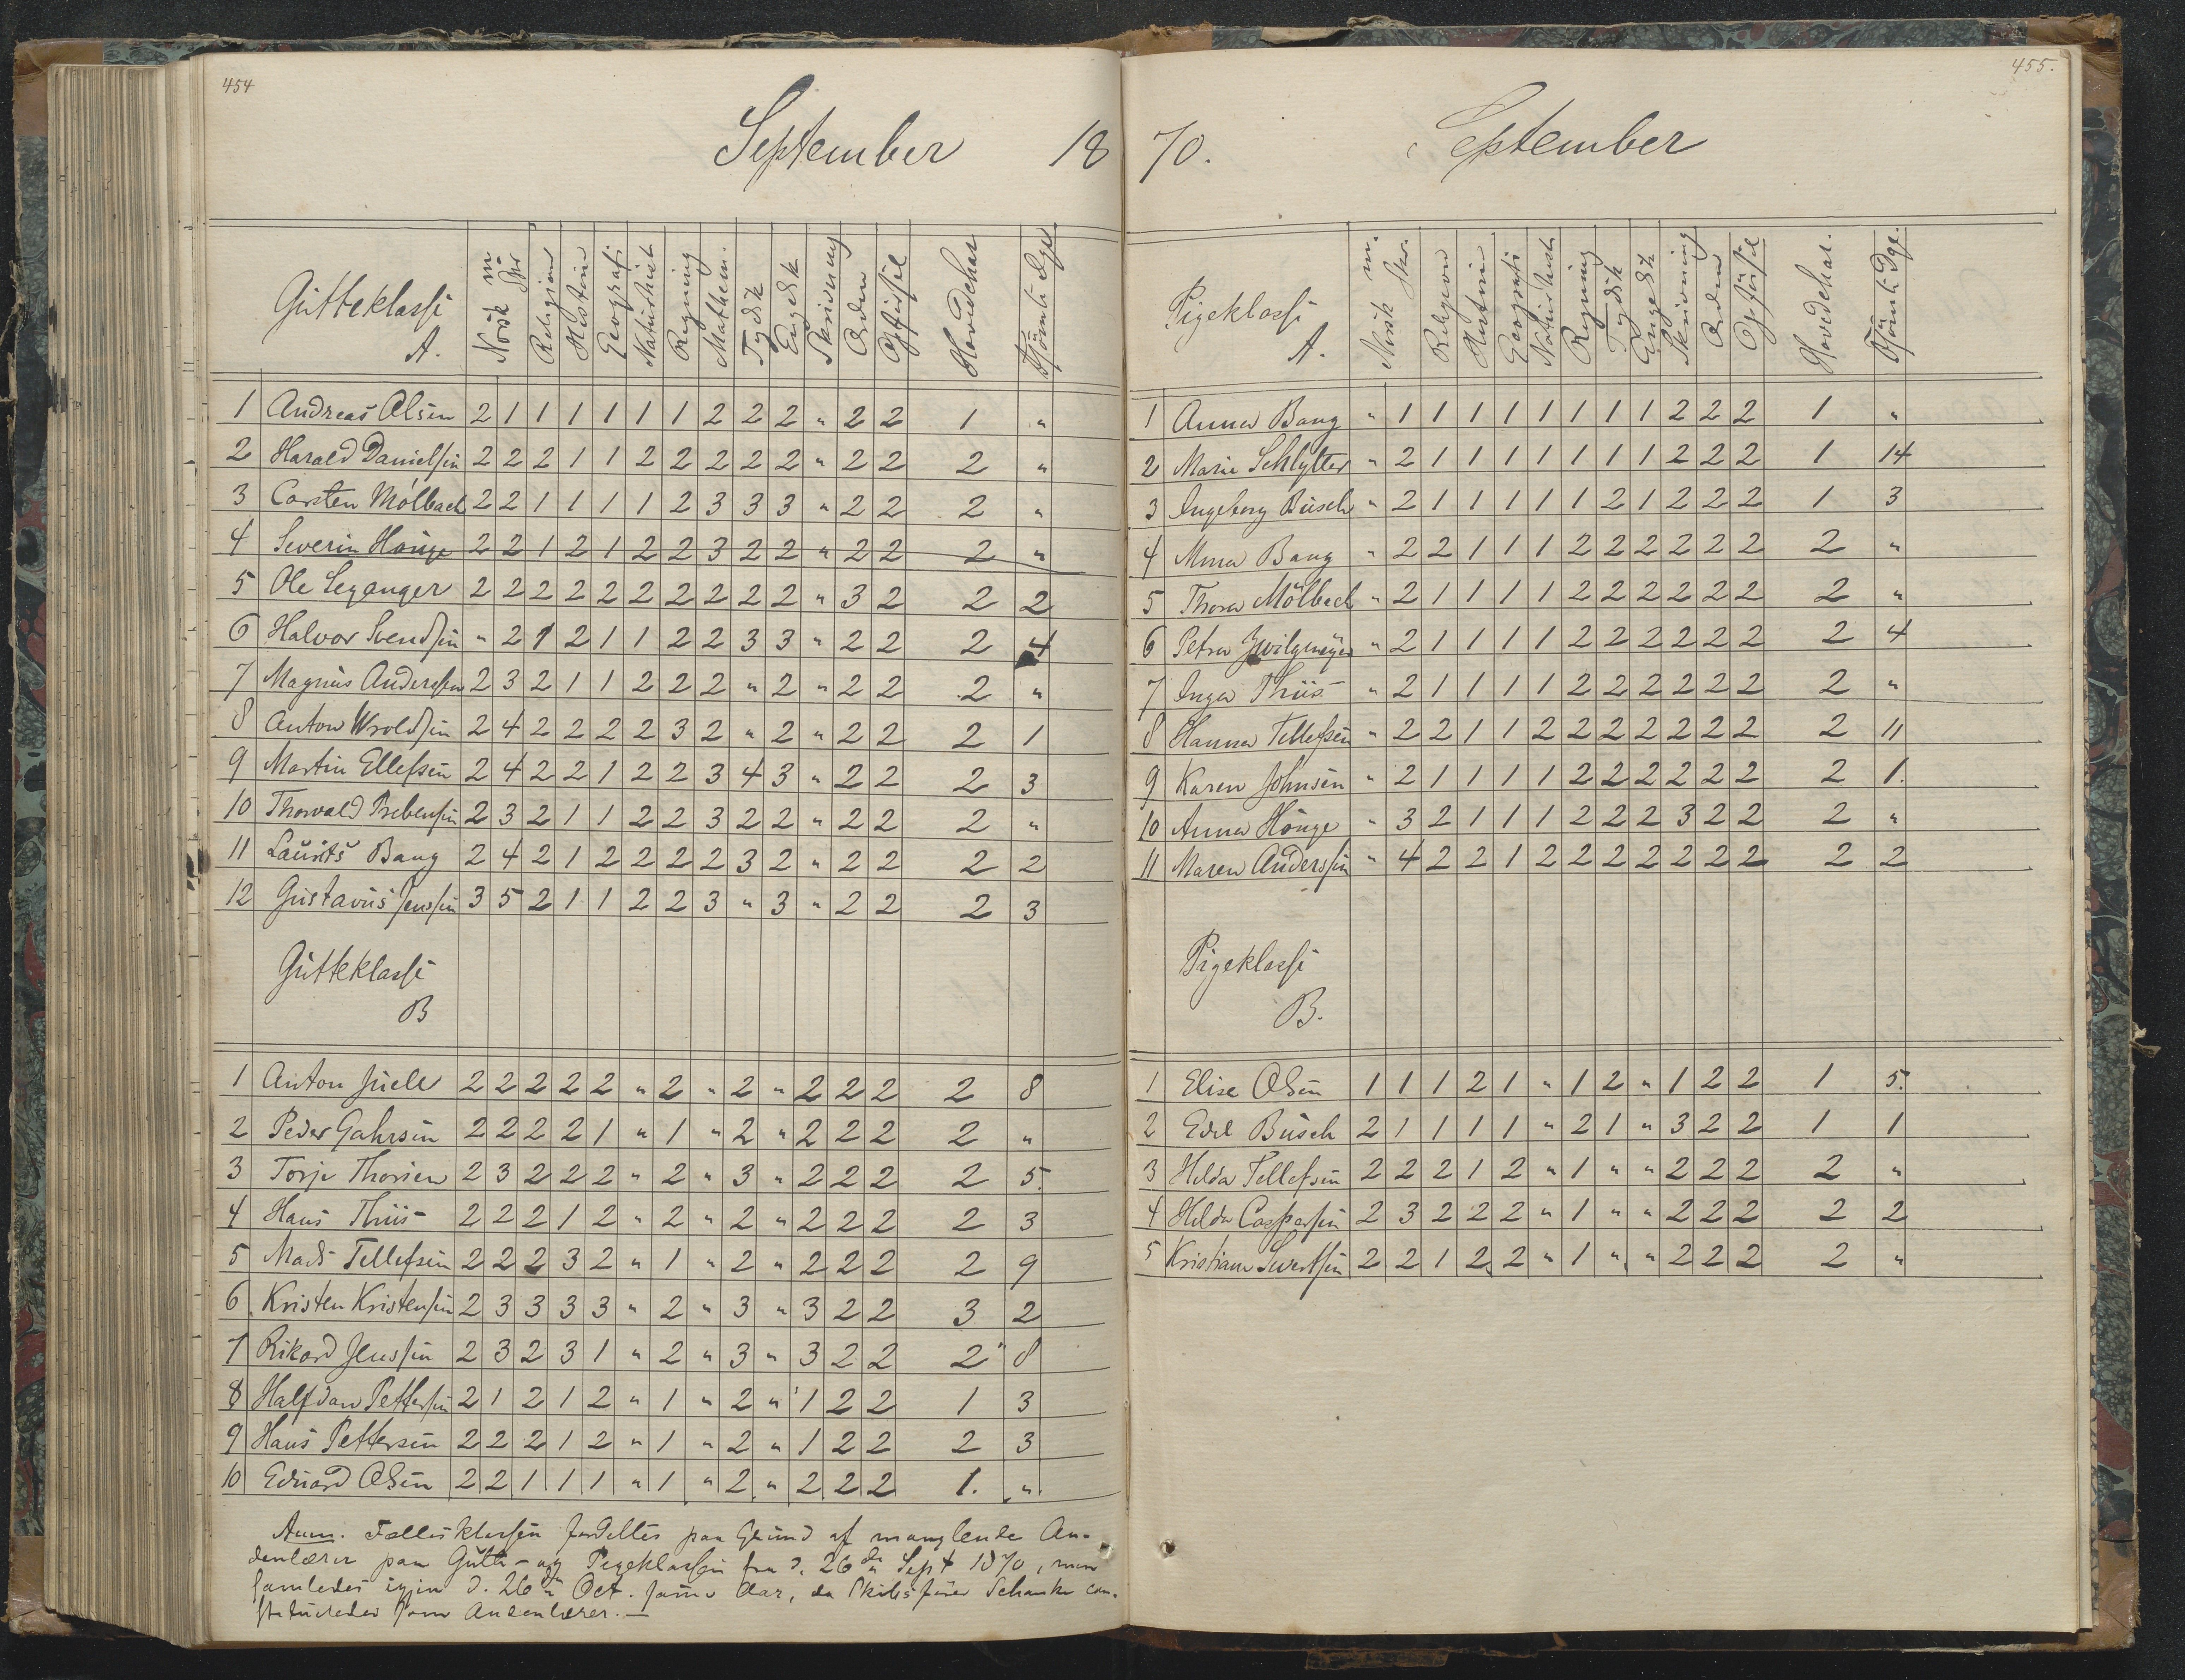 454
September 18
Gutteklasse A. Norsk m Spr Religion Historie Geografi Naturhist Regning Mathem. Tydsk Engelsk Skrivning Orden Opførsel Hovedchar Forsømte Dge
1 Andreas Olsen 2 1 1 1 1 1 1 2 2 2 " 2 2 1 "
2 Harald Danielsen 2 2 2 1 1 2 2 2 2 2 " 2 2 2 "
3 Carsten Mølbach 2 2 1 1 1 1 2 3 3 3 " 2 2 2 "
4 Severin Houge 2 2 1 2 1 2 2 3 2 2 " 2 2 2 "
5 Ole Leganger 2 2 2 2 2 2 2 2 2 2 " 3 2 2 2
6 Halvor Svendsen " 2 1 2 1 1 2 2 3 3 " 2 2 2 4
7 Magnus Anderssen 2 3 2 1 1 2 2 2 " 2 " 2 2 2 "
8 Anton Wroldsen 2 4 2 2 2 2 3 2 " 2 " 2 2 2 1
9 Martin Ellefsen 2 4 2 2 1 2 2 3 4 3 " 2 2 2 3
10 Thorvald Prebensen 2 3 2 1 1 2 2 3 2 2 " 2 2 2 "
11 Laurits Bang 2 4 2 1 2 2 2 2 3 2 " 2 2 2 2
12 Gustavus Jenssen 3 5 2 1 1 2 2 3 " 3 " 2 2 2 3
Gutteklasse
B
1 Anton Juell 2 2 2 2 2 " 2 " 2 " 2 2 2 2 8
2 Peder Gahrsen 2 2 2 2 1 " 1 " 2 " 2 2 2 2 "
3 Torje Thorsen 2 3 2 2 2 " 2 " 3 " 2 2 2 2 5.
4 Hans Thiis 2 2 2 1 2 " 2 " 2 " 2 2 2 2 3
5 Mads Tellefsen 2 2 2 3 2 " 1 " 2 " 2 2 2 2 9
6 Kristen Kristensen 2 3 3 3 3 " 2 " 3 " 3 2 2 3 2
7 Rikard Jenssen 2 3 2 3 1 " 2 " 3 " 3 2 2 2 8
8 Halfdan Pettersen 2 1 2 1 2 " 1 " 2 " 1 2 2 1 3
9 Hans Pettersen 2 2 2 1 2 " 1 " 2 " 1 2 2 2 3
10 Eduard Olsen 2 2 1 1 1 " 1 " 2 " 2 2 2 1. "
Anm. Fællesklassen fordeltes paa Grund af manglende An-
denlærer paa Gutte- og Pigeklassen fra d. 26de Sept 1870, men
samledes igjen d. 26de Oct. samme Aar, da Schanke con-
stitueredes som Andenlærer.
455.
70. September
Pigeklasse A. Norsk m. Skr. Religion Historie Geografi Naturhist Regning Tydsk Engelsk Skrivning Orden Opførsel Hovedchar. Forsømte Dge.
1 Anna Bang " 1 1 1 1 1 1 1 1 2 2 2 1 "
2 Marie Schlytter " 2 1 1 1 1 1 1 1 2 2 2 1 14
3 Ingeborg Busch " 2 1 1 1 1 1 2 1 2 2 2 1 3
4 Mina Bang " 2 2 1 1 1 2 2 2 2 2 2 2 "
5 Thora Mölbach " 2 1 1 1 1 2 2 2 2 2 2 2 "
6 Petra Zwilgmeyer " 2 1 1 1 1 2 2 2 2 2 2 2 4
7 Inga Thiis " 2 1 1 1 1 2 2 2 2 2 2 2 "
8 Hanna Tellefsen " 2 2 1 1 2 2 2 2 2 2 2 2 11
9 Karen Johnsen " 2 1 1 1 1 2 2 2 2 2 2 2 1.
10 Anna Houge " 3 2 1 1 1 2 2 2 3 2 2 2 "
11 Maren Anderssen " 4 2 2 1 2 2 2 2 2 2 2 2 2
Pigeklasse
B.
1 Elise Olsen 1 1 1 2 1 " 1 2 " 1 2 2 1 5.
2 Edel Busch 2 1 1 1 1 " 2 1 " 3 2 2 1 1
3 Hilda Tellefsen 2 2 2 1 2 " 1 " " 2 2 2 2 "
4 Hilda Caspersen 2 3 2 2 2 " 1 " " 2 2 2 2 2
5 Kristiane Sivertsen 2 2 1 2 2 " 1 " " 2 2 2 2 "